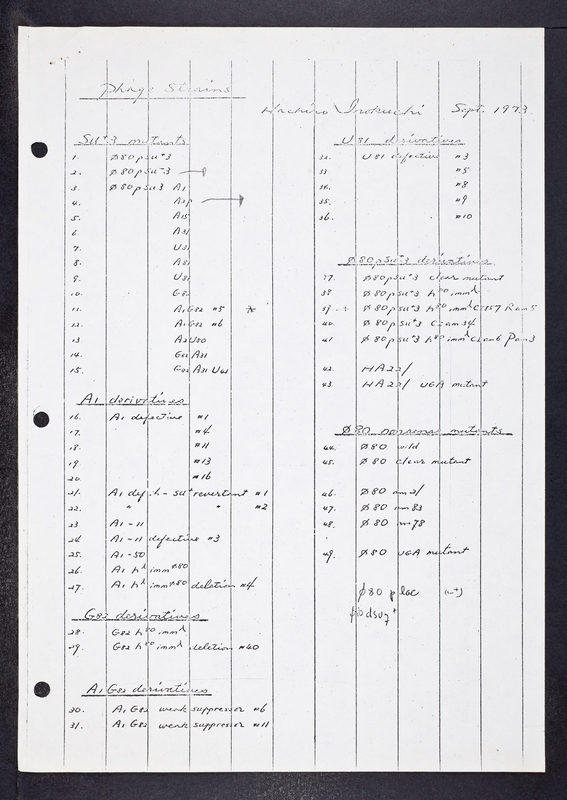 Phage Strains
Hachiro Inokuchi Sept. 1973
Su+3 mutants
1. Ø80psu+3
2. Ø80psu-3
3. Ø80psu3 A1
4. A2p
5. A15
6. A31
7. U31
8. A81
9. U81
10. G82
11. A1G82 #5
12. A1G82 #6
13 A2U80
14. G82 A31
15. G82 A31 U81
A1 derivatives
16. A1 defective #1
17. #4
18. #11
19. #13
20. #16
21. A1 def. h- su+ revertant #1
22. " " #2
23 A1-11
24 A1-11 defective #3
25. A1-50
26. A1 hλ immØ80
27. A1 hλ immØ80 deletion #4
G82 derivatives
28. G82 h80 immλ
29. G82 h80 immλ deletion #40
A1G82 derivatives
30. A1G82 weak suppressor #6
31. A1G82 weak suppressor #11
U81 derivatives
32. U81 defective #3
33 #5
34. #8
35. #9
36. #10
Ø80psu+3 derivatives
37. Ø80psu+3 clear mutant
38 Ø80psu+3 h80 immλ
39. Ø80psu+3 h80 immλ CI857 Ram5
40. Ø80psu+3 CIam34
41 Ø80psu+3 h80 immλ
42. HA221
43. HA221 UGA mutant
Ø80 nonsense mutants
44. Ø80 wild
45. Ø80 clear mutant
46. Ø80 am21
47. Ø80 am83
48. Ø80 am78
49. Ø80 UGA mutant
Ø80 plac